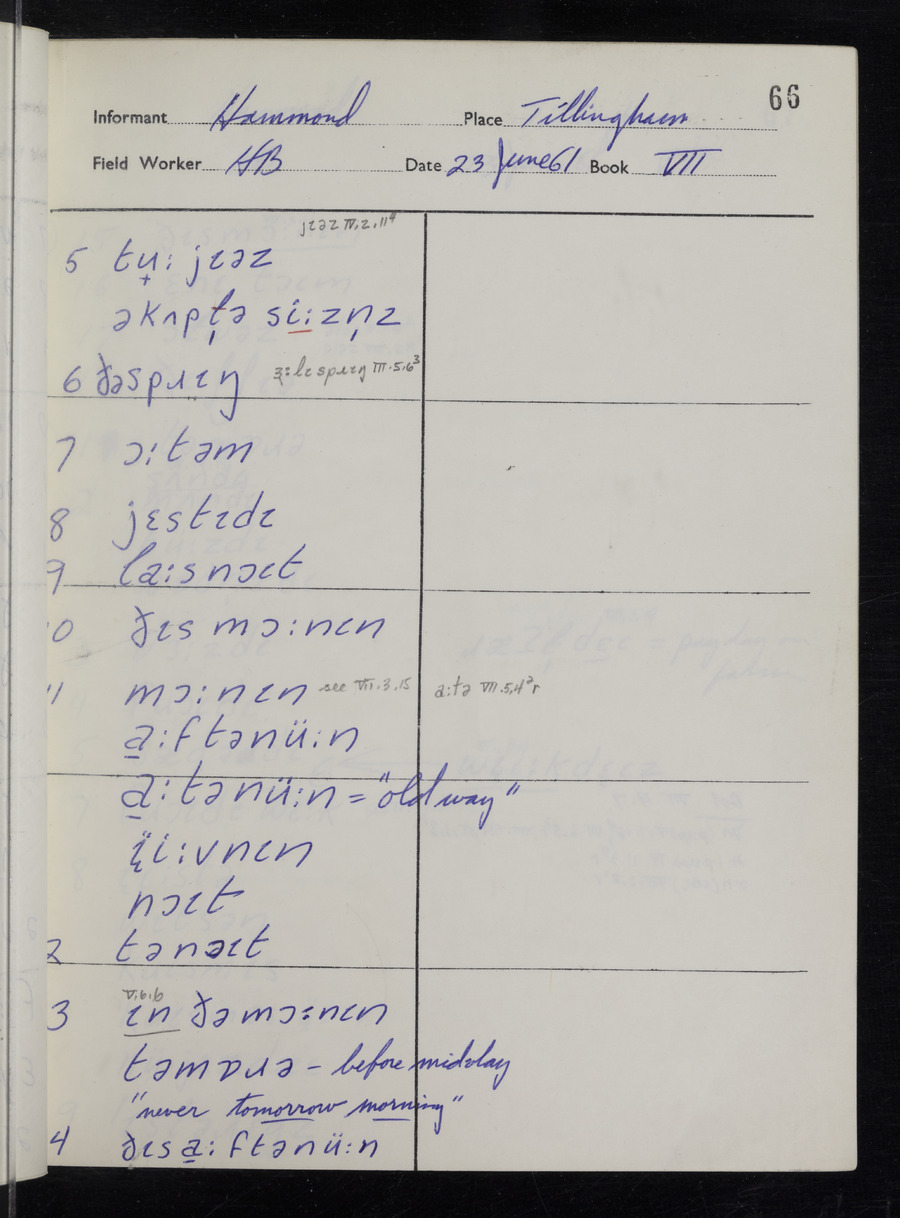 66
Informant Hammond Place Tillingham
Field Worker HB Date 23 June 61 Book VII
jɪəz IV.2.11⁴
5 tʉ̟: jɪəz
əkʌpt̩ə si:zn̩z
6 ðəspɹɪŋ ɜ̣:lɪ spɹɪŋ III.5.6³
7 ɔ:təm
8 jɛstɪdɪ
9 la:snɔɪt
0 ðɪs mɔ:nɪn
11 mɔ:nɪn see VII.3.15 a:tə VII.5.4²r
a̱:ftənü:n
a̱:tənü:n = "old way"
ï̞i:vnɪn
nɔɪt
2 tənəɪt
V.6.6
3 ɪn ðəmɔ:nɪn
təmɒɹə - before midday
"never tomorrow morning"
4 ðɪs a̱:ftənü:n